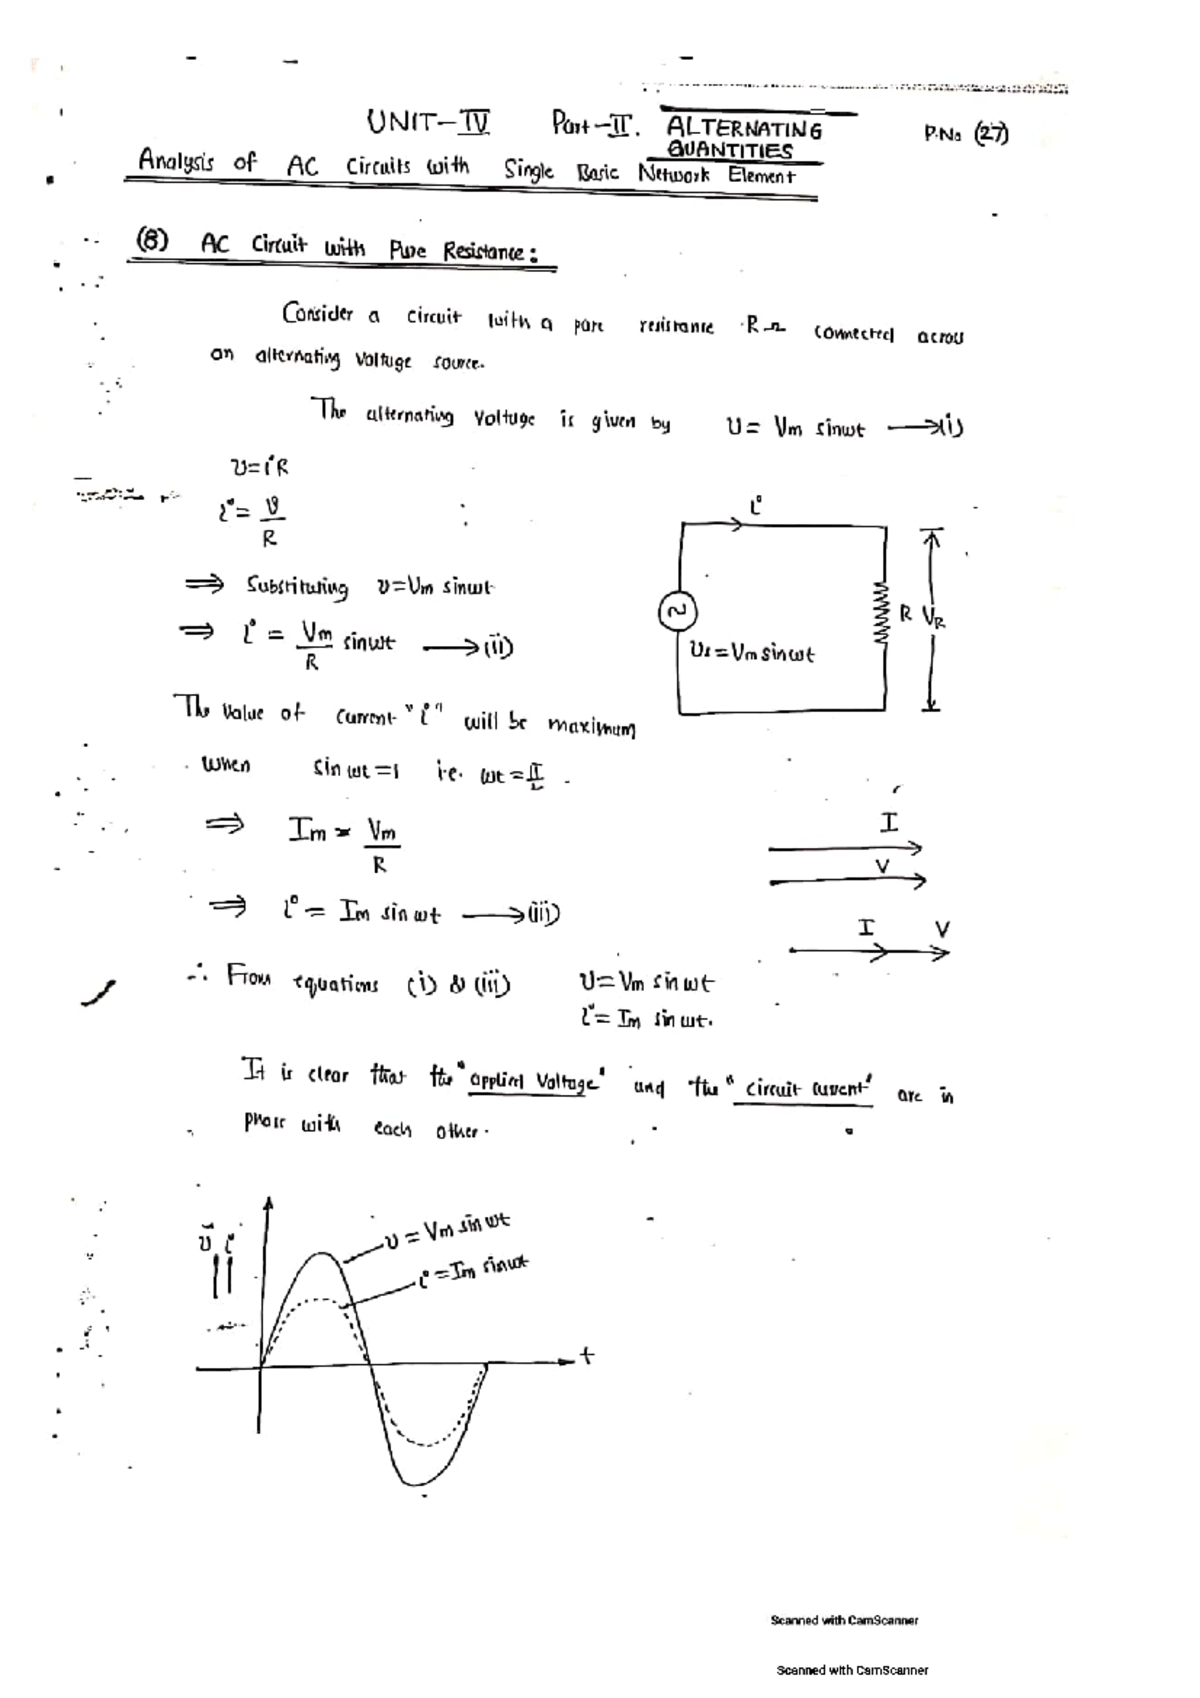 UNIT-IV Part-II. ALTERNATING QUANTITIES P.No (27)
Analysis of AC Circuits with Single Basic Network Element
(8) AC Circuit with Pure Resistance:
Consider a circuit with a pure resistance R Ω connected across
an alternating voltage source.
The alternating voltage is given by v = Vm sinωt ⟶(i)
v = iR
i = v/R
⇒ Substituting v = Vm sinωt
⇒ i = Vm/R sinωt ⟶(ii)
The value of current "i" will be maximum
when sin ωt = 1 i.e. ωt = π/2.
⇒ Im = Vm/R
⇒ i = Im sin ωt ⟶(iii)
i
R VR
Vs = Vm sin ωt
I
V
I V
∴ From equations (i) & (iii) v = Vm sin ωt
i = Im sin ωt.
It is clear that the "applied voltage" and the "circuit current" are in
phase with each other.
v i
v = Vm sin ωt
i = Im sin ωt
t
Scanned with CamScanner
Scanned with CamScanner